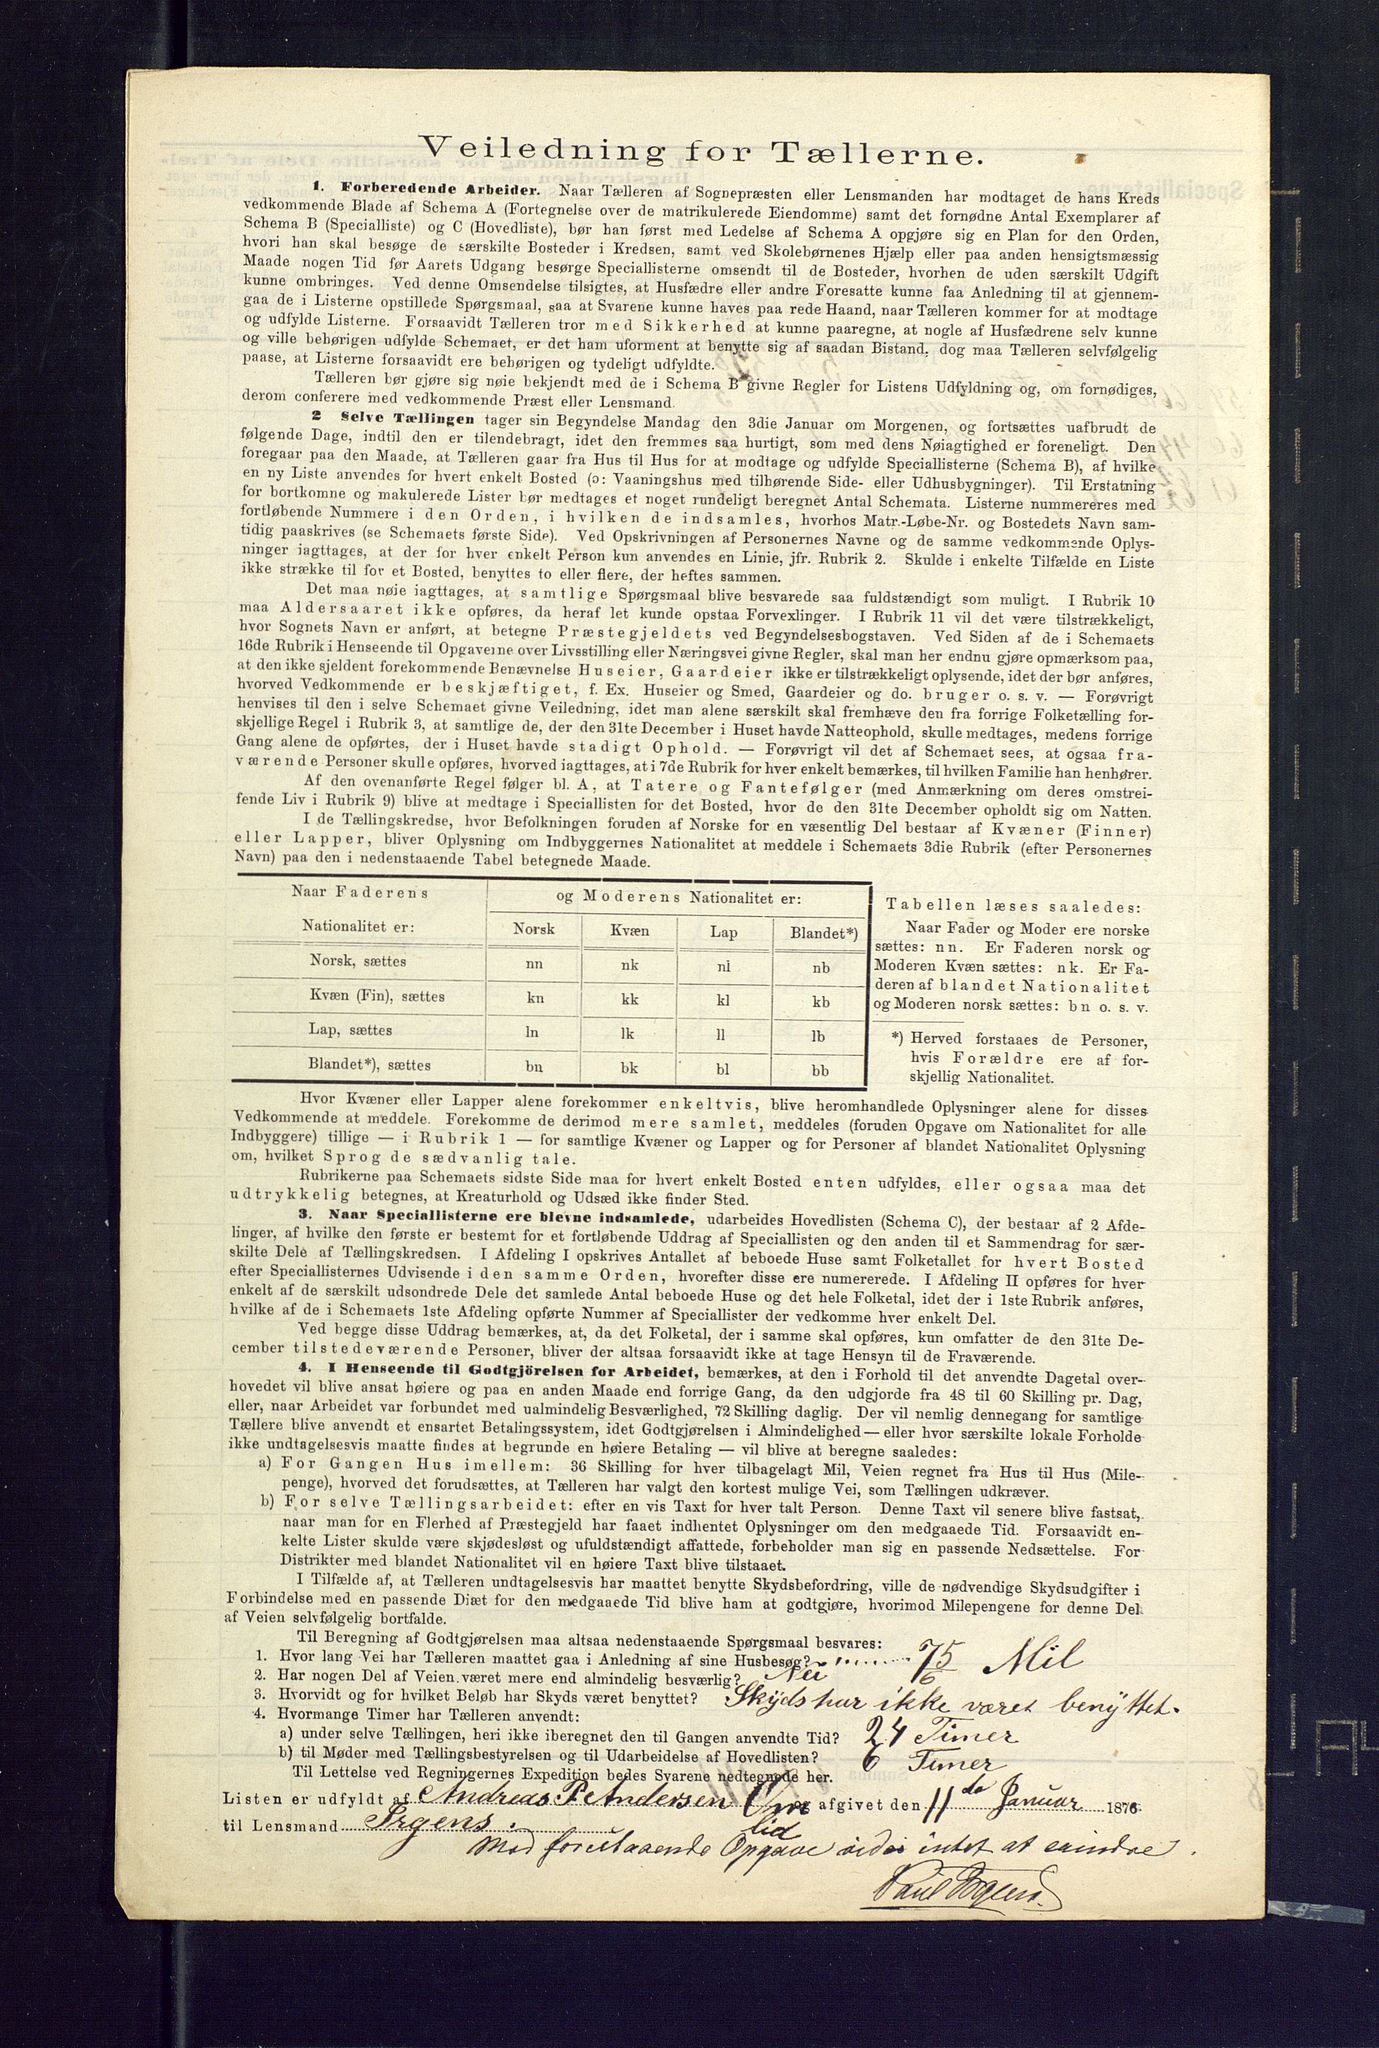 Veiledning for Tællerne.
1. Forberedende Arbeider. Naar Tælleren af Sognepræsten eller Lensmanden har modtaget de hans Kreds
vedkommende Blade af Schema A (Fortegnelse over de matrikulerede Eiendomme) samt det fornødne Antal Exemplarer af
Schema B (Specialliste) og C (Hovedliste), bør han først med Ledelse af Schema A opgjøre sig en Plan for den Orden,
hvori han skal besøge de særskilte Bosteder i Kredsen, samt ved Skolebørnenes Hjælp eller paa anden hensigtsmæssig
Maade nogen Tid før Aarets Udgang besørge Speciallisterne omsendt til de Bosteder, hvorhen de uden særskilt Udgift
kunne ombringes. Ved denne Omsendelse tilsigtes, at Husfædre eller andre Foresatte kunne faa Anledning til at gjennem-
gaa de i Listerne opstillede Spørgsmaal, saa at Svarene kunne haves paa rede Haand, naar Tælleren kommer for at modtage
og udfylde Listerne. Forsaavidt Tælleren tror med Sikkerhed at kunne paaregne, at nogle af Husfædrene selv kunne
og ville behørigen udfylde Schemaet, er det ham uforment at benytte sig af saadan Bistand, dog maa Tælleren selvfølgelig
paase, at Listerne forsaavidt ere behørigen og tydeligt udfyldte.
Tælleren bør gjøre sig nøie bekjendt med de i Schema B givne Regler for Listens Udfyldning og, om fornødiges,
derom conferere med vedkommende Præst eller Lensmand.
2 Selve Tællingen tager sin Begyndelse Mandag den 3die Januar om Morgenen, og fortsættes uafbrudt de
følgende Dage, indtil den er tilendebragt, idet den fremmes saa hurtigt, som med dens Nøiagtighed er foreneligt. Den
foregaar paa den Maade, at Tælleren gaar fra Hus til Hus for at modtage og udfylde Speciallisterne (Schema B), af hvilke
en ny Liste anvendes for hvert enkelt Bosted (ɔ: Vaaningshus med tilhørende Side- eller Udhusbygninger). Til Erstatning
for bortkomne og makulerede Lister bør medtages et noget rundeligt beregnet Antal Schemata. Listerne nummereres med
fortløbende Nummere i den Orden, i hvilken de indsamles, hvorhos Matr.-Løbe-Nr. og Bostedets Navn sam-
tidig paaskrives (se Schemaets første Side). Ved Opskrivningen af Personernes Navne og de samme vedkommende Oplys-
ninger iagttages, at der for hver enkelt Person kun anvendes en Linie, jfr. Rubrik 2. Skulde i enkelte Tilfælde en Liste
ikke strække til for et Bosted, benyttes to eller flere, der heftes sammen.
Det maa nøie iagttages, at samtlige Spørgsmaal blive besvarede saa fuldstændigt som muligt. I Rubrik 10
maa Aldersaaret ikke opføres, da heraf let kunde opstaa Forvexlinger. I Rubrik 11 vil det være tilstrækkeligt,
hvor Sognets Navn er anført, at betegne Præstegjeldets ved Begyndelsesbogstaven. Ved Siden af de i Schemaets
16de Rubrik i Henseende til Opgaverne over Livsstilling eller Næringsvei givne Regler, skal man her endnu gjøre opmærksom paa,
at den ikke sjeldent forekommende Benævnelse Huseier, Gaardeier ikke er tilstrækkeligt oplysende, idet der bør anføres,
hvorved Vedkommende er beskjæftiget, f. Ex. Huseier og Smed, Gaardeier og do. bruger o. s. v. — Forøvrigt
henvises til den i selve Schemaet givne Veiledning, idet man alene særskilt skal fremhæve den fra forrige Folketælling for-
skjellige Regel i Rubrik 3, at samtlige de, der den 31te December i Huset havde Natteophold, skulle medtages, medens forrige
Gang alene de opførtes, der i Huset havde stadigt Ophold. — Forøvrigt vil det af Schemaet sees, at ogsaa fra-
værende Personer skulle opføres, hvorved iagttages, at i 7de Rubrik for hver enkelt bemærkes, til hvilken Familie han henhører.
Af den ovenanførte Regel følger bl. A, at Tatere og Fantefølger (med Anmærkning om deres omstrei-
fende Liv i Rubrik 9) blive at medtage i Speciallisten for det Bosted, hvor de den 31te December opholdt sig om Natten.
I de Tællingskredse, hvor Befolkningen foruden af Norske for en væsentlig Del bestaar af Kvæner (Finner)
eller Lapper, bliver Oplysning om Indbyggernes Nationalitet at meddele i Schemaets 3die Rubrik (efter Personernes
Navn) paa den i nedenstaaende Tabel betegnede Maade.
Naar Faderens og Moderens Nationalitet er:
Nationalitet er: Norsk Kvæn Lap Blandet*)
Norsk, sættes nn nk nl nb
Kvæn (Fin), sættes kn kk kl kb
Lap, sættes ln lk ll lb
Blandet*), sættes bn bk bl bb
Tabellen læses saaledes:
Naar Fader og Moder ere norske
sættes: nn. Er Faderen norsk og
Moderen Kvæn sættes: nk. Er Fa-
deren af blandet Nationalitet
og Moderen norsk sættes: bn o. s. v.
*) Herved forstaaes de Personer,
hvis Forældre ere af for-
skjellig Nationalitet.
Hvor Kvæner eller Lapper alene forekommer enkeltvis, blive heromhandlede Oplysninger alene for disses
Vedkommende at meddele. Forekomme de derimod mere samlet, meddeles (foruden Opgave om Nationalitet for alle
Indbyggere) tillige — i Rubrik 1 — for samtlige Kvæner og Lapper og for Personer af blandet Nationalitet Oplysning
om, hvilket Sprog de sædvanlig tale.
Rubrikerne paa Schemaets sidste Side maa for hvert enkelt Bosted enten udfyldes, eller ogsaa maa det
udtrykkelig betegnes, at Kreaturhold og Udsæd ikke finder Sted.
3. Naar Speciallisterne ere blevne indsamlede, udarbeides Hovedlisten (Schema C), der bestaar af 2 Afde-
linger, af hvilke den første er bestemt for et fortløbende Uddrag af Speciallisten og den anden til et Sammendrag for sær-
skilte Dele af Tællingskredsen. I Afdeling I opskrives Antallet af beboede Huse samt Folketallet for hvert Bosted
efter Speciallisternes Udvisende i den samme Orden, hvorefter disse ere numererede. I Afdeling II opføres for hver
enkelt af de særskilt udsondrede Dele det samlede Antal beboede Huse og det hele Folketal, idet der i 1ste Rubrik anføres,
hvilke af de i Schemaets 1ste Afdeling opførte Nummer af Speciallister der vedkomme hver enkelt Del.
Ved begge disse Uddrag bemærkes, at, da det Folketal, der i samme skal opføres, kun omfatter de den 31te De-
cember tilstedeværende Personer, bliver der altsaa forsaavidt ikke at tage Hensyn til de Fraværende.
4. I Henseende til Godtgjörelsen for Arbeidet, bemærkes, at den i Forhold til det anvendte Dagetal over-
hovedet vil blive ansat høiere og paa en anden Maade end forrige Gang, da den udgjorde fra 48 til 60 Skilling pr. Dag,
eller, naar Arbeidet var forbundet med ualmindelig Besværlighed, 72 Skilling daglig. Der vil nemlig dennegang for samtlige
Tællere blive anvendt et ensartet Betalingssystem, idet Godtgjørelsen i Almindelighed — eller hvor særskilte lokale Forholde
ikke undtagelsesvis maatte findes at begrunde en høiere Betaling — vil blive at beregne saaledes:
a) For Gangen Hus imellem: 36 Skilling for hver tilbagelagt Mil, Veien regnet fra Hus til Hus (Mile-
penge), hvorved det forudsættes, at Tælleren har valgt den kortest mulige Vei, som Tællingen udkræver.
b) For selve Tællingsarbeidet: efter en vis Taxt for hver talt Person. Denne Taxt vil senere blive fastsat,
naar man for en Flerhed af Præstegjeld har faaet indhentet Oplysninger om den medgaaede Tid. Forsaavidt en-
kelte Lister skulde være skjødesløst og ufuldstændigt affattede, forbeholder man sig en passende Nedsættelse. For
Distrikter med blandet Nationalitet vil en høiere Taxt blive tilstaaet.
I Tilfælde af, at Tælleren undtagelsesvis har maattet benytte Skydsbefordring, ville de nødvendige Skydsudgifter i
Forbindelse med en passende Diæt for den medgaaede Tid blive ham at godtgjøre, hvorimod Milepengene for denne Del
af Veien selvfølgelig bortfalde.
Til Beregning af Godtgjørelsen maa altsaa nedenstaaende Spørgsmaal besvares:
1. Hvor lang Vei har Tælleren maattet gaa i Anledning af sine Husbesøg? 7 5/6 Mil
2. Har nogen Del af Veien været mere end almindelig besværlig? Nei
3. Hvorvidt og for hvilket Beløb har Skyds været benyttet? Skyds har ikke været benyttet.
4. Hvormange Timer har Tælleren anvendt:
a) under selve Tællingen, heri ikke iberegnet den til Gangen anvendte Tid? 24 Timer
b) til Møder med Tællingsbestyrelsen og til Udarbeidelse af Hovedlisten? 6 Timer
Til Lettelse ved Regningernes Expedition bedes Svarene nedtegnede her.
Listen er udfyldt af Andreas P. Andersen Um og afgivet den 11te Januar 1876
lid
til Lensmand Irgens.
Mod forestaaende Opgave vides intet at erindre.
Paul Irgens.